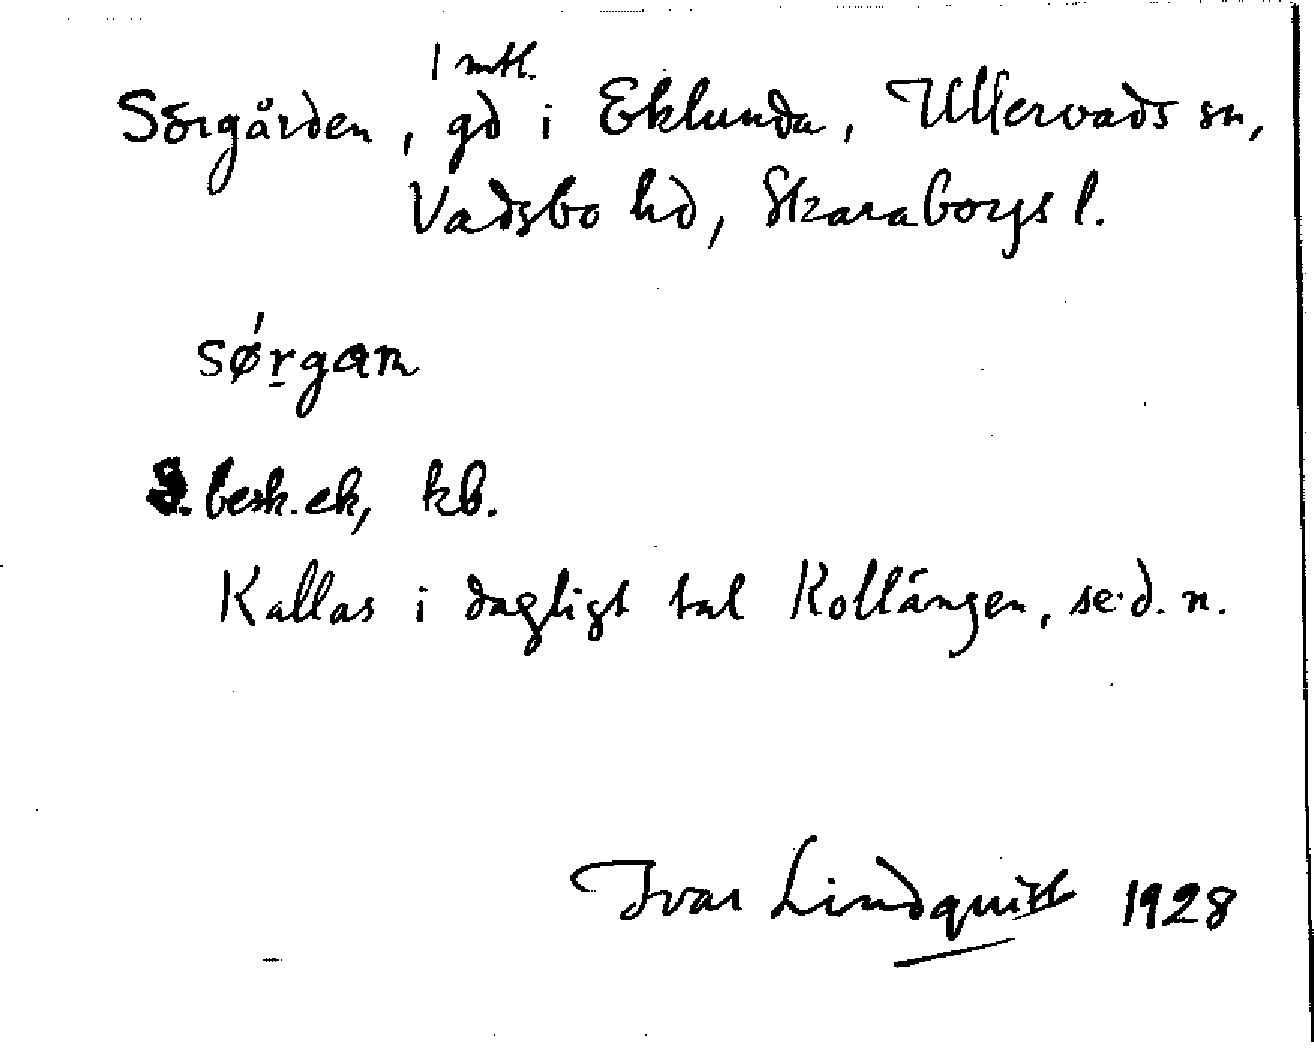 1 mtl.
Sörgården, gd i Eklunda, Ullervads sn,
Vadsbo hd, Skaraborgs l.
sǿr̠gaɴ
S. besk. ek, kb.
Kallas i dagligt tal Kollängen, se d. n.
Ivar Lindquist 1928